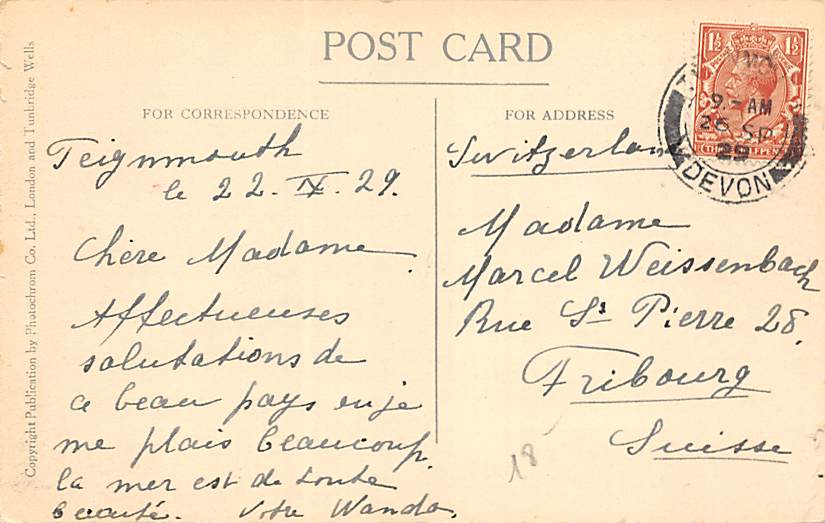 POST CARD
FOR CORRESPONDENCE
FOR ADDRESS
Copyright Publication by Photochrom Co. Ltd., London and Tunbridge Wells
1½ 1½
9.- AM
26 SP
29
DEVON
Teignmouth
le 22. IX. 29.
Chère Madame.
Affectueuses
salutations de
ce beau pays où je
me plais beaucoup.
la mer est de toute
beauté. Votre Wanda.
Switzerland
Madame
Marcel Weissenbach
Rue St Pierre 28.
Fribourg
Suisse
18